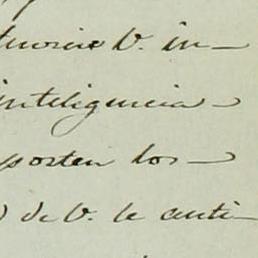 V. in-
inteligencia
porten los
de V. le anti-